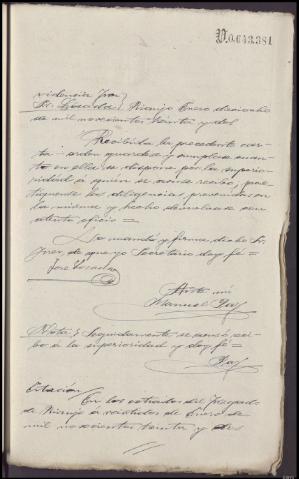 V.0.643.381
Providencia Juez
Sr. Losada. Naranjo Enero dieciocho
de mil novecientos treinta y dos
Recibida la precedente carta
orden guardese y cumplase cuanto
en ella se dispone por la superioridad
a quien se acuse recibo, practiquense
las diligencias prevenidas en
la misma y hecho devuelvase con
atento oficio =
Lo mandó y firma dicho Sr.
Juez de que yo Secretario doy fé =
José Losada
Ante mi
Manuel
Nota: Seguidamente se acusó recibo
á la superioridad y doy fé =
Citación
En los estrados del Juzgado
de á veintidos de Enero de
mil novecientos treinta y dos